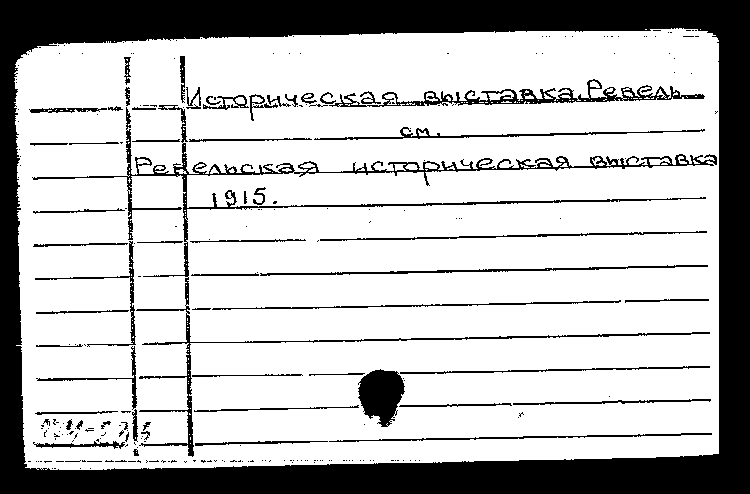 Историческая выставка. Ревель
см.
Ревельская историческая выставка
1915.